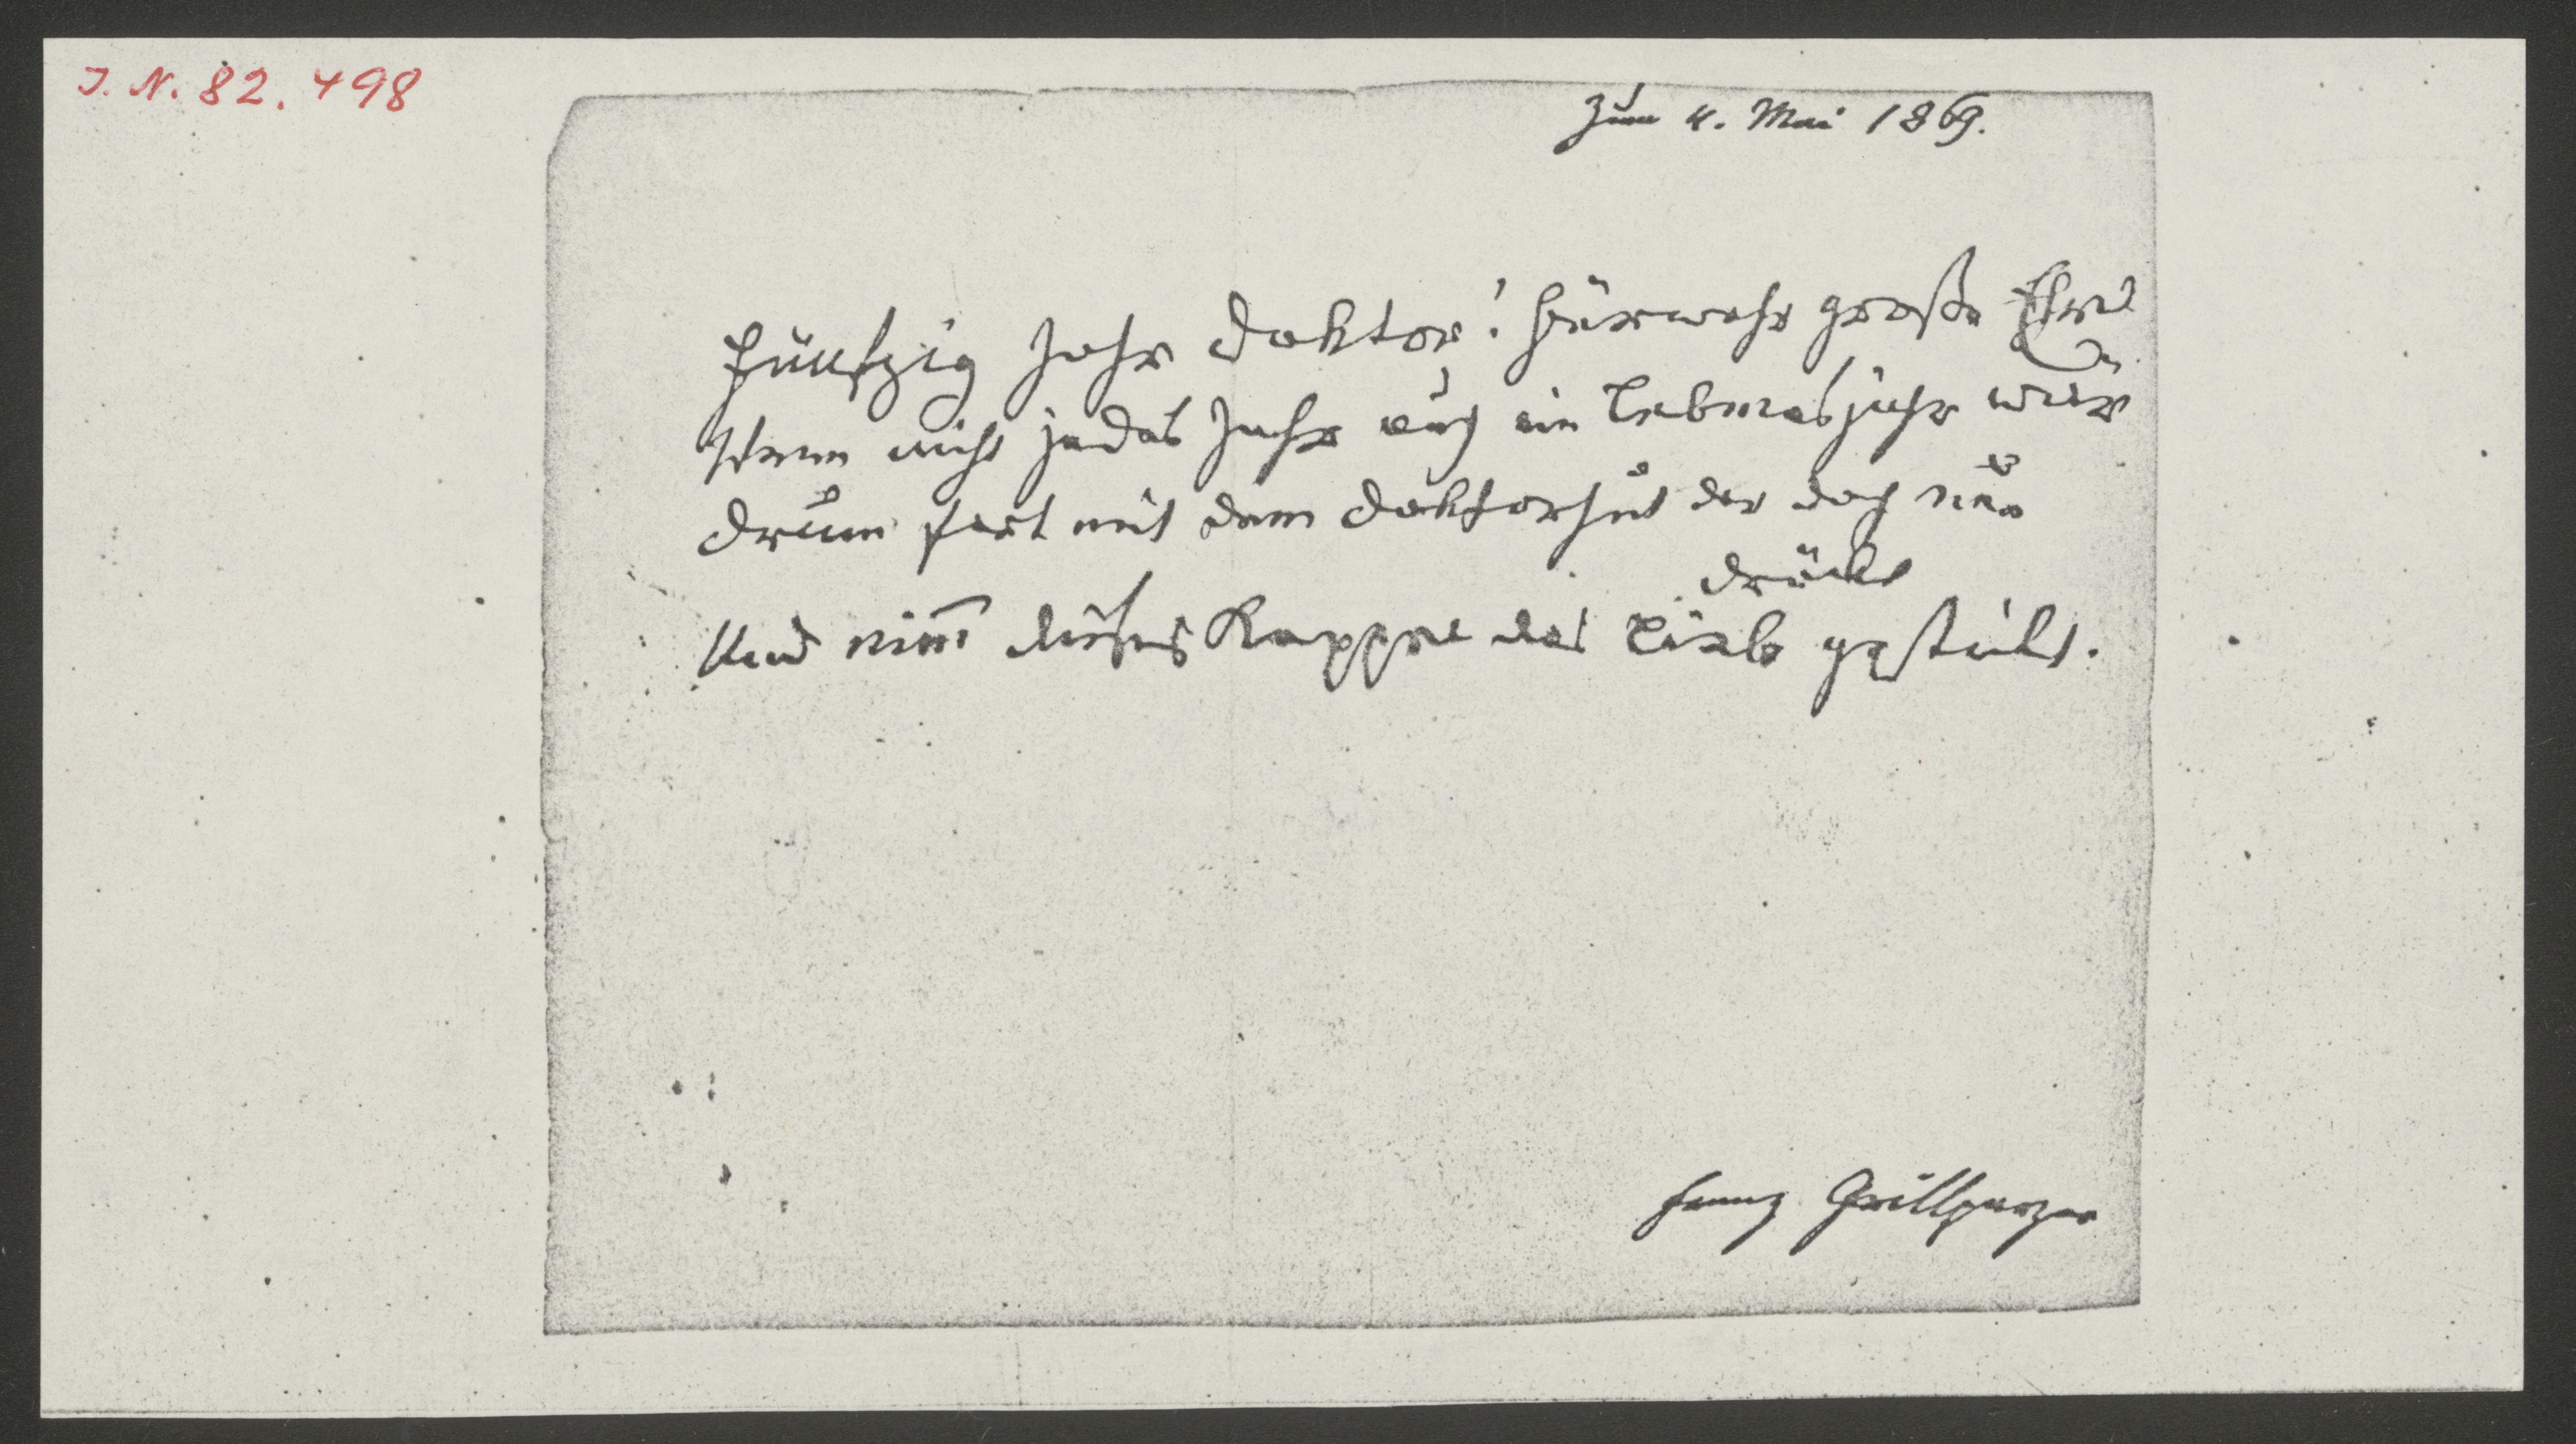 J. N. 82.498
Zum 4. Mai 1869.
Fünfzig Jahr Doktor! Fürwahr große Ehre
Wenn nicht jedes Jahr auch ein Lebensjahr wär
Drum fort mit dem Doktorhut der doch nur
drückt
Und nimm dieses Kappel das Liebe gestickt.
Franz Grillparzer